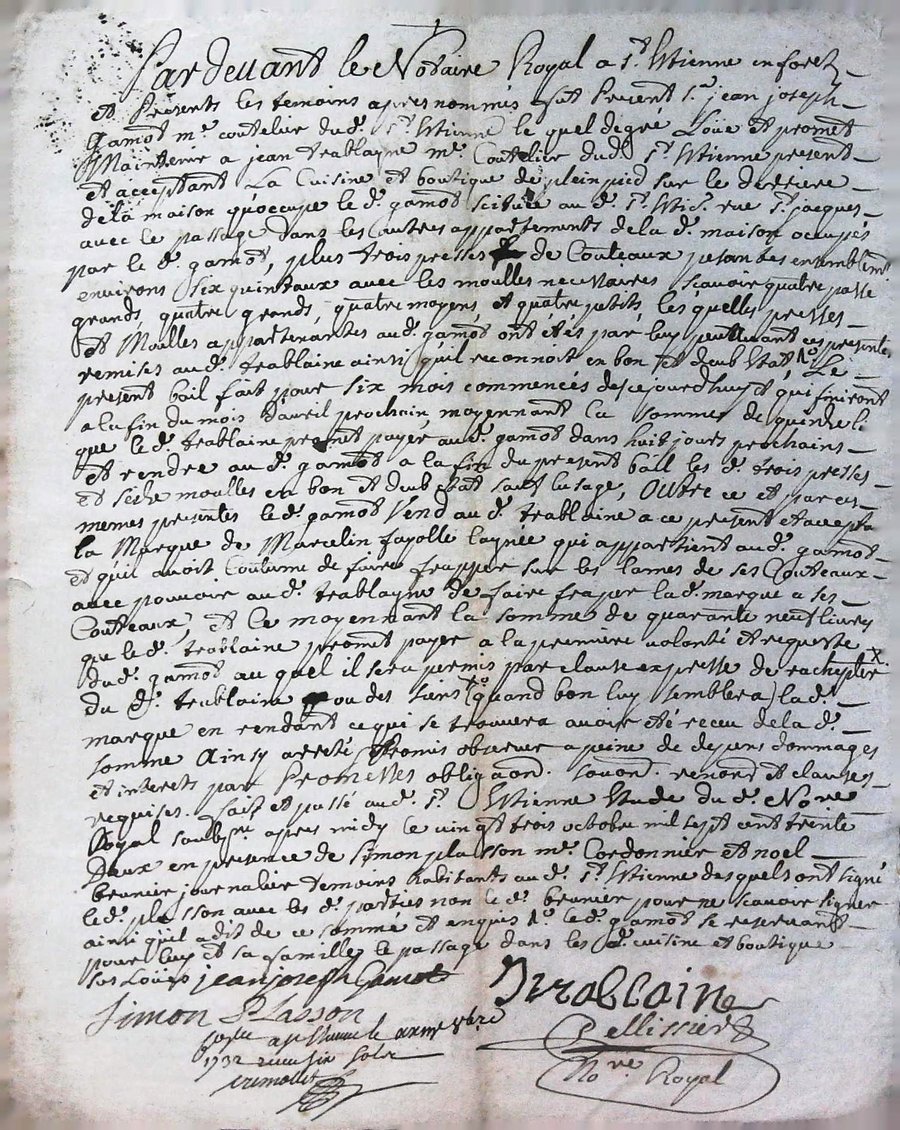 Pardevant le Notaire Royal a St Etienne en forêz
et Presents les temoins apres nommés fut Present Sr jean joseph
Gamot me coutelier dud. St Etienne le quel de gre Loüe et promet
Maintenir a jean trablayne me Coutelier dud St Etienne present
et acceptant La Cuisine et boutique de plein pied sur le derriere
dela maison qu'occupe le d. gamot scituée au d. St Etie. rue St jacques
avec le passage dans les autres appartements dela d. maison occupés
par le d. gamot, plus trois presses de Couteaux pesantes ensemblemt
environs six quintaux avec les moulles necessaires scavoir quatre passe
grands, quatre grands, quatre moyens, et quatre petits, les quelles presses
et Moulles appartenantes aud. gamot ont étés par luy presentement
remises aud. trablaine ainsi qu'il reconnoit en bon et deub état, Le
present bail fait pour six mois commencés descejourdhuy et qui finiront
a la fin du mois d'avril prochain, moyennant la somme de quinze l.
que le d. trablaine promet payer aud. gamot dans huit jours prochains
et rendre au d. gamot a la fin du present bail les d. trois presses
et seize moulles en bon et deub état sauf lusage, Outre ce et par ces
memes presentes le d. gamot Vend au d. trablaine a ce present et accepta
la Marque de Marcelin fayolle laynée qui appartient au d. gamot
et qu'il avoit Coutume de faire frapper sur les lames de ses Couteaux
avec pouvoir au d. trablayne de faire fraper la d. marque a ses
Couteaux, et ce moyennant la somme de quarante neuf livres
que le d. trablaine promet payer a la premiere volonté et requeste
du d. gamot au quel il sera permis par clause expresse de rachepter
du d. trablaine ou des siens (quand bon luy semblera) la d.
marque en rendant ce qui se trouvera avoir été receu de la d.
somme Ainsy arreté Promis observer a peine de depens dommages
et interets par Promesses obligaond. soumond. renond et clauses
requises. fait et passé au d. St Etienne Etude du d. Nore
Royal soubsne apres midy le vingt trois octobre mil sept cent trente
Deux en presence de Simon plasson me Cordonnier et noel
brunier journalier temoins habitants au d. St Etienne desquels ont signé
le d. plasson avec les d. parties non le d. brunier pour ne scavoir signer
ainsi qu'il a dit de ce sommé et enquis le d. gamot se reservant
pour luy et sa famille le passage dans les d. cuisine et boutique
jeanjoseph Gamot
Trablaine
Simon Plasson
Pellissier
Nore Royal
1732 receu six sols